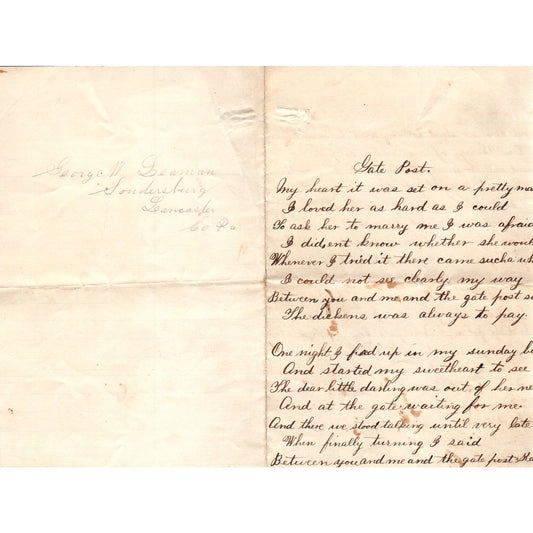 George W. Leaman
Sondersburg
Lancaster
Co Pa
Gate Post.
My heart it was set on a pretty ma
I loved her as hard as I could
To ask her to marry me I was afraid
I did,ent know whether she woul
Whenever I tri'd it there came sucha wh
I could not see clearly my way
Between you and me and the gate post s
The dickens was always to pay.
One night I fixed up in my sunday b
And started my sweetheart to see
The dear little darling was out of her ne
And at the gate waiting for me
And there we stood talking until very late
When finally turning I said
Between you and me and the gate post